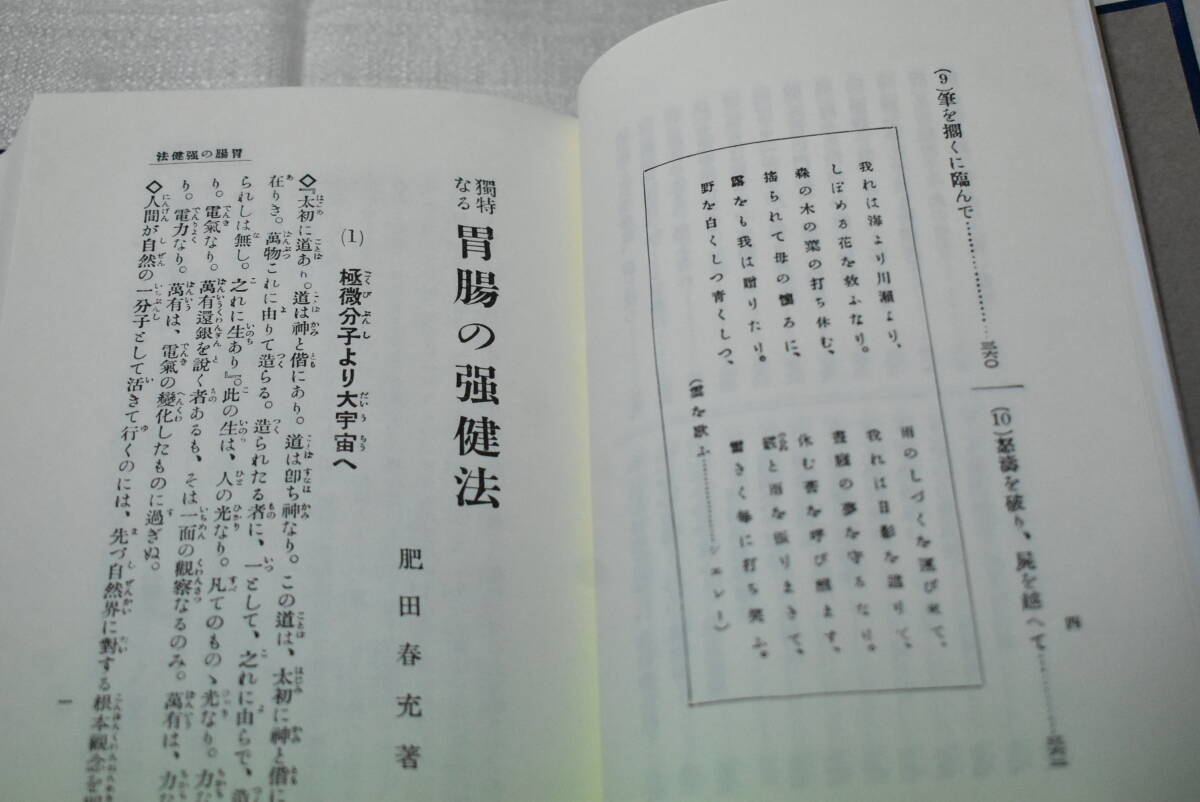 (9)筆を擱くに臨んで……………三六〇
(10)怒濤を破り、屍を越へて……………三六二
我れは海より川瀬より、
雨のしづくを運び來て、
しぼめる花を救ふなり。
我れは日影を遮りて、
森の木の葉の打ち休む、
晝寢の夢を守るなり。
搖られて母の懷ろに、
休む蕾を呼び醒ます、
露をも我は贈りたり。
霰と雨を張りまきて、
野を白くしつ青くしつ、
雷さく毎に打ち笑ふ。
(雲を歌ふ……………シエレー)
四
獨特なる 胃腸の强健法
肥田春充著
(1) 極微分子より大宇宙へ
◇『太初に道あり。道は神と偕にあり。道は卽ち神なり。この道は、太初に神と偕に
在りき。萬物これに由りて造らる。造られたる者に、一として、之れに由らで、造
られしは無し。之れに生あり』。此の生は、人の光なり。凡てのものゝ光なり。力な
り。電氣なり。萬有還銀を說く者あるも、そは一面の觀察なるのみ。萬有は、力な
り。電力なり。萬有は、電氣の變化したものに過ぎぬ。
◇人間が自然の一分子として活きて行くのには、先づ自然界に對する根本觀念を
胃腸の强健法
一